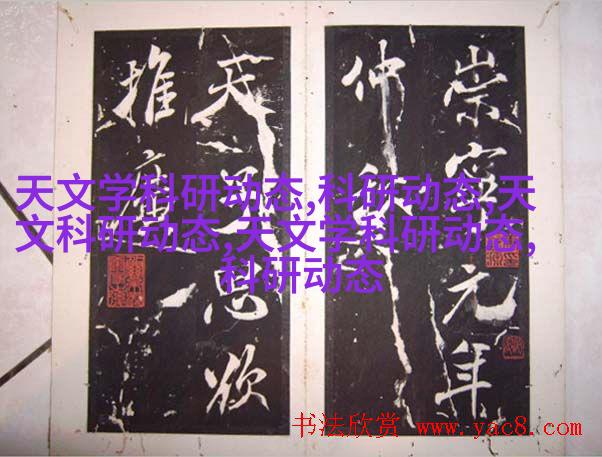 崇寧元年
仲
思欲
推廣
天文学科研动态,科研动态,天
文科研动态,天文学科研动态,
科研动态
书法欣赏 www.yac8.com